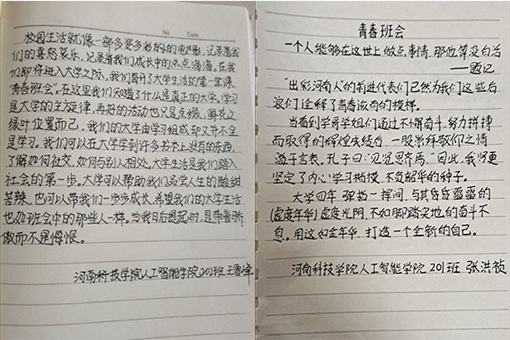 No
Date
校园生活就像一部多姿多彩的的电影,记录着我
们的喜怒哀乐,记录着我们成长中的点点滴滴。在我
们即将进入大学之际,我们有了大学生活的第一堂课
"青春班会"。在这里我们知道了什么是真正的大学,学习
是大学的主旋律,再好的活动也只是点缀,鲜花之
绿叶位置而已,我们的大学由学习组成却又不全
是学习。我们可以在大学学到许多书本上没有的东西,
了解如何社交,如何与别人相处。大学生活是我们踏入
社会的第一步。大学可以帮助我们品党人生的酸甜
苦辣,也可以帮我们一步步成长,希望我们的大学生活
也如班会中的那些人一样。当我日后提起时,是带着骄
傲而不是悔恨。
河南科技学院人工智能学院201班
青春班会
一个人能够在这世上做点事情,那他算没白活
——题记
"出彩河南人"的前进代表们已然为我们这些后
浪们诠释了青春该有的模样。
当看到学哥学姐们通过不懈奋斗,努力拼搏
而取得的辉煌成绩后,一股崇拜敬仰之情
溢于言表,孔子曰:"见贤思齐焉。"因此,我更
坚定了内心学习楷模,不负韶华的种子。
大学四年,弹指一挥间,与其昏昏噩噩的
虚度光阴,不如脚踏实地的奋斗不
息。用这如金年华,打造一个全新的自己。
河南科技学院人工智能学院 201班 张洪祯